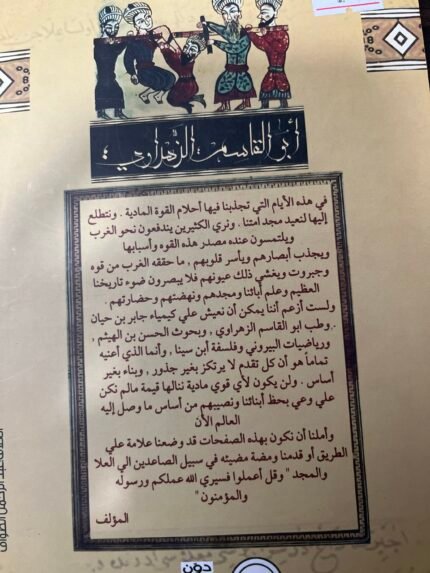 أبو القاسم الزهراوي ؛
في هذه الأيام التي تجذبنا فيها أحلام القوة المادية . ونتطلع
إليها لنعيد مجد امتنا . ونري الكثيرين يندفعون نحو الغرب
ويلتمسون عنده مصدر هذه القوه وأسبابها
ويجذب أبصارهم ويأسر قلوبهم , ما حققه الغرب من قوه
وجبروت ويغشي ذلك عيونهم فلا يبصرون ضوء تاريخنا
العظيم وعلم أبائنا ومجدهم ونهضتهم وحضارتهم .
ولست أزعم أننا يمكن أن نعيش علي كيمياء جابر بن حيان
. وطب ابو القاسم الزهراوي , وبحوث الحسن بن الهيثم ,
ورياضيات البيروني وفلسفة أبن سينا , وأنما الذي أعنيه
تماماً هو أن كل تقدم لا يرتكز بغير جذور , وبناء بغير
أساس . ولن يكون لأي قوي مادية ننالها قيمة مالم نكن
علي وعي بحظ أبنائنا ونصيبهم من أساس ما وصل إليه
العالم الأن
وأملنا أن نكون بهذه الصفحات قد وضعنا علامة علي
الطريق أو قدمنا ومضة مضيئه في سبيل الصاعدين الي العلا
والمجد " وقل أعملوا فسيري الله عملكم ورسوله
والمؤمنون "
المؤلف
دوّن